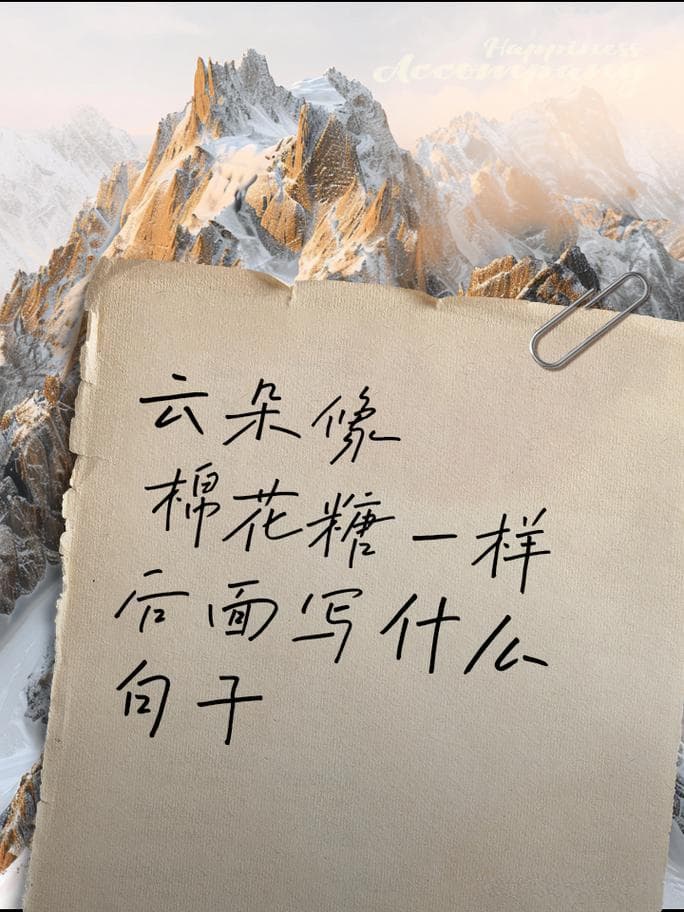 Happiness
Accompany
云朵像
棉花糖一样
后面写什么
句子